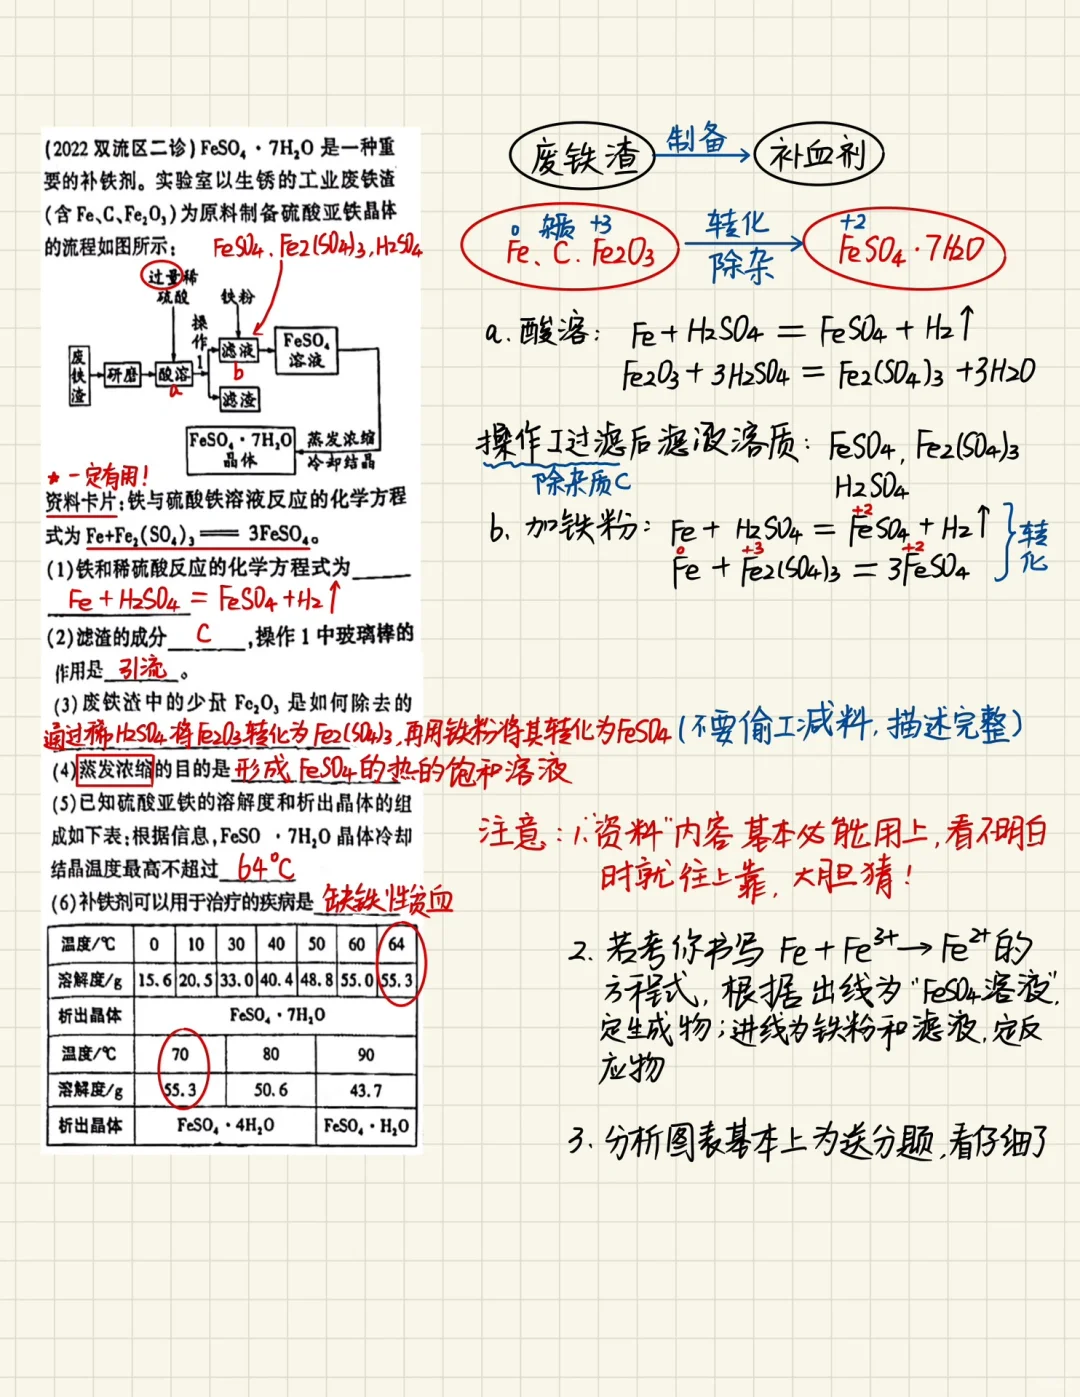 (2022双流区二诊)FeSO₄·7H₂O是一种重
要的补铁剂。实验室以生锈的工业废铁渣
(含Fe、C、Fe₂O₃)为原料制备硫酸亚铁晶体
的流程如图所示:
FeSO₄、Fe₂(SO₄)₃,H₂SO₄
过量稀
硫酸
铁粉
操作1
废铁渣
研磨
酸溶
a
滤液
b
FeSO₄
溶液
滤渣
FeSO₄·7H₂O
晶体
蒸发浓缩
冷却结晶
★一定有用!
资料卡片:铁与硫酸铁溶液反应的化学方程
式为Fe+Fe₂(SO₄)₃══3FeSO₄。
(1)铁和稀硫酸反应的化学方程式为
Fe+H₂SO₄=FeSO₄+H₂↑
(2)滤渣的成分 C ,操作1中玻璃棒的
作用是 引流 。
(3)废铁渣中的少量Fe₂O₃是如何除去的
通过稀H₂SO₄将Fe₂O₃转化为Fe₂(SO₄)₃,再用铁粉将其转化为FeSO₄(不要偷工减料,描述完整)
(4)蒸发浓缩的目的是 形成FeSO₄的热的饱和溶液
(5)已知硫酸亚铁的溶解度和析出晶体的组
成如下表:根据信息,FeSO ·7H₂O晶体冷却
结晶温度最高不超过 64℃
(6)补铁剂可以用于治疗的疾病是 缺铁性贫血
温度/℃ 0 10 30 40 50 60 64
溶解度/g 15.6 20.5 33.0 40.4 48.8 55.0 55.3
析出晶体 FeSO₄·7H₂O
温度/℃ 70 80 90
溶解度/g 55.3 50.6 43.7
析出晶体 FeSO₄·4H₂O FeSO₄·H₂O
废铁渣 制备 补血剂
0 杂质 +3 转化 +2
Fe、C、Fe₂O₃ 除杂 FeSO₄·7H₂O
a.酸溶: Fe+H₂SO₄=FeSO₄+H₂↑
Fe₂O₃+3H₂SO₄=Fe₂(SO₄)₃+3H₂O
操作I过滤后滤液溶质: FeSO₄,Fe₂(SO₄)₃
除杂质C
H₂SO₄
b.加铁粉: Fe+H₂SO₄=FeSO₄+H₂↑
+2
0 +3 +2
Fe+Fe₂(SO₄)₃=3FeSO₄
转化
注意:1."资料"内容基本必能用上,看不明白
时就往上靠,大胆猜!
2.若考你书写Fe+Fe³⁺→Fe²⁺的
方程式,根据出线为"FeSO₄溶液",
定生成物;进线为铁粉和滤液,定反
应物
3.分析图表基本上为送分题,看仔细了